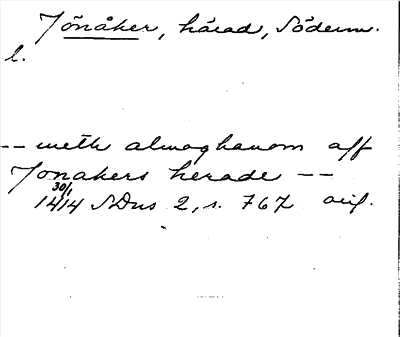 Jönåker, härad, Söderm.
l.
-- meth almoghanom aff
Jonakers herade --
30/1
1414 SDns 2, s. 767 orig.